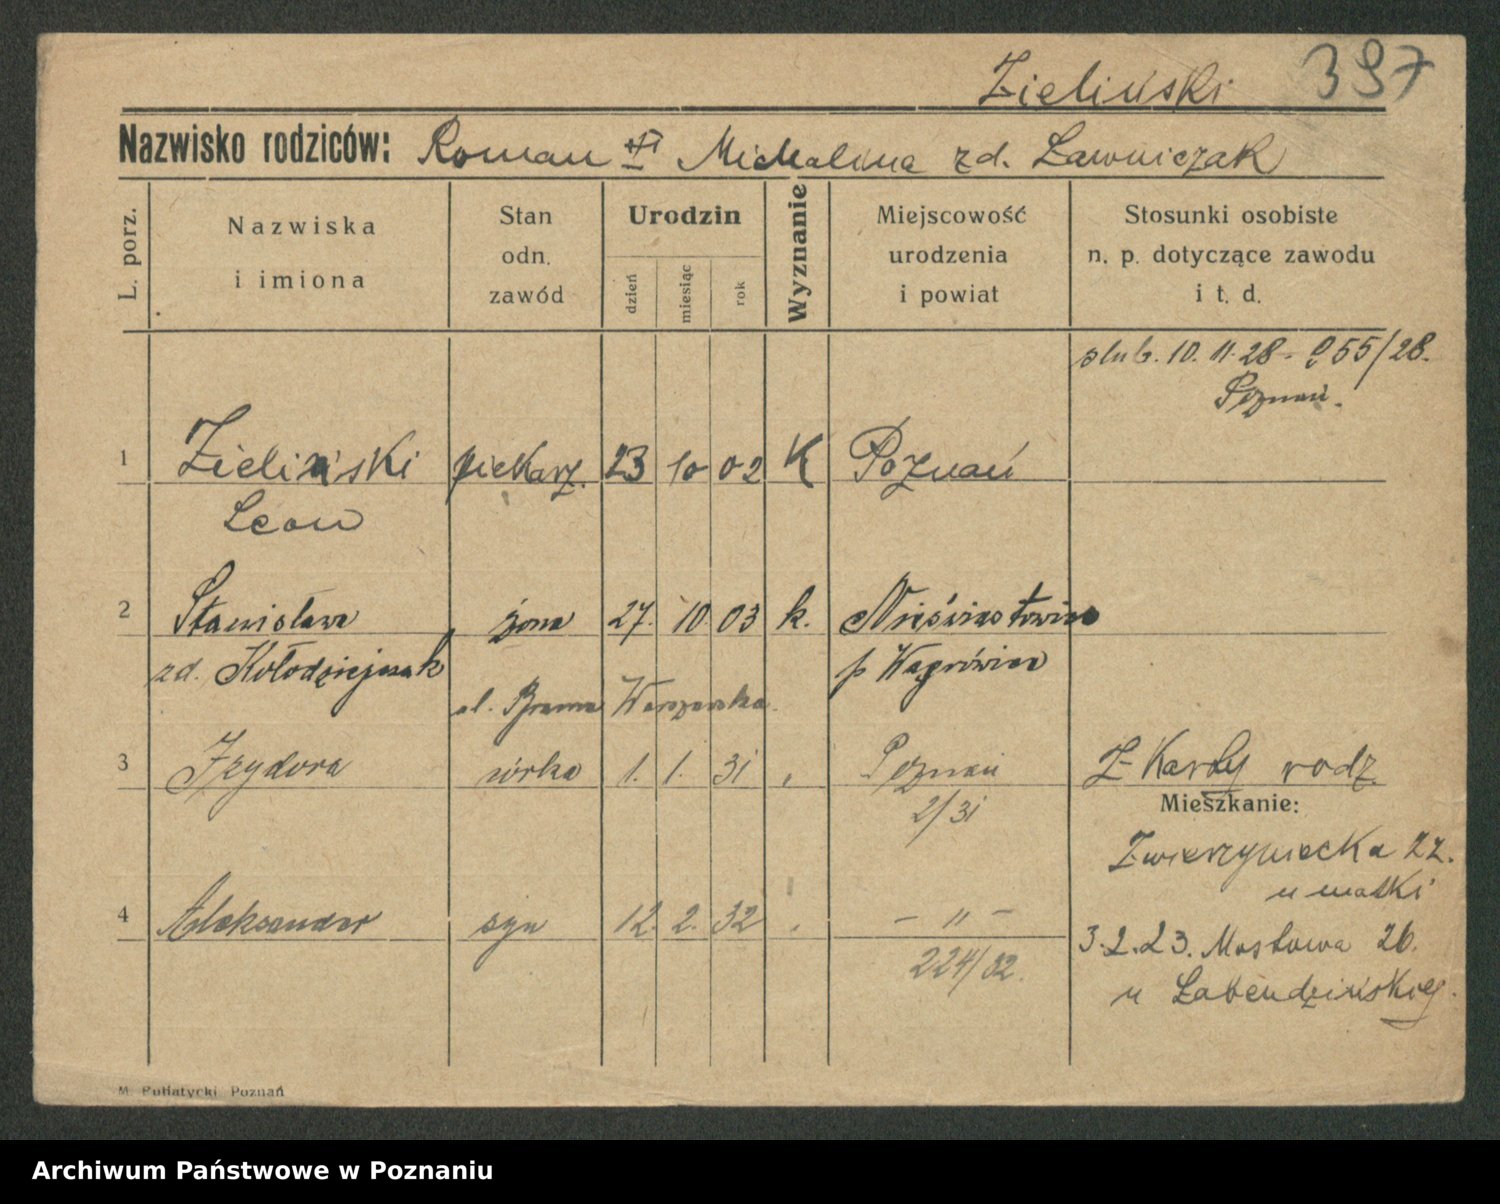 Zieliński 397
Nazwisko rodziców: Roman Michalina zd. Ławniczak
L. porz.
Nazwiska
i imiona
Stan
odn.
zawód
Urodzin
dzień
miesiąc
rok
Wyznanie
Miejscowość
urodzenia
i powiat
Stosunki osobiste
n. p. dotyczące zawodu
i t. d.
slub. 10. 11. 28 - 955/28.
Poznań.
1 Zieliński piekarz. 23 10 02 K Poznań
Leon
2 Stanisława żona 27. 10 03 k.
zd. Kołodziejczak p Wągrówiec
ul. Brama Warszawska.
3 Izydora córka 1. 1. 31 Poznań Z Karty rodz.
2/31
Mieszkanie:
Zwierzyniecka 22.
u matki
4 Aleksander syn 12. 2. 32 - " -
3.2.23. Mostowa 26.
224/32.
u Łabendzińskiej.
M. Putiatycki Poznań
Archiwum Państwowe w Poznaniu